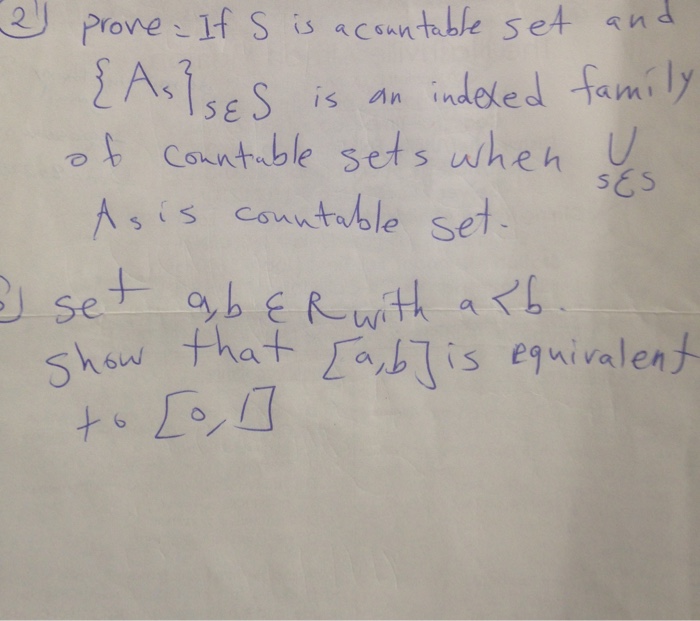 2) prove: If S is a countable set and
{As}sεS is an indexed family
of countable sets when ∪
sεS
As is countable set.
) set a,b ε R with a < b.
show that [a,b] is equivalent
to [0,1]